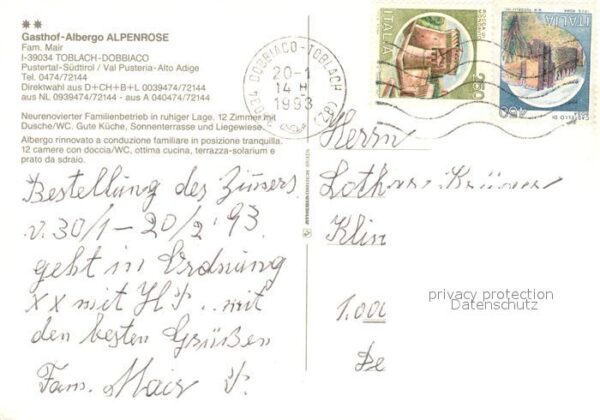 Gasthof-Albergo ALPENROSE
Fam. Mair
I-39034 TOBLACH-DOBBIACO
Pustertal-Südtirol / Val Pusteria-Alto Adige
Tel. 0474/72144
Direktwahl aus D+CH+B+L 0039474/72144
aus NL 0939474/72144 - aus A 040474/72144
Neurenovierter Familienbetrieb in ruhiger Lage, 12 Zimmer mit
Dusche/WC. Gute Küche, Sonnenterrasse und Liegewiese.
Albergo rinnovato a conduzione familiare in posizione tranquilla.
12 camere con doccia/WC, ottima cucina, terrazza-solarium e
prato da sdraio.
Bestellung des Zimmers
v. 30/1 - 20/2 '93
geht in Ordnung
xx mit HP... mit
den besten Grüßen
Fam. Mair
39034 DOBBIACO-TOBLACH (BZ)
20-1
14 H
1993
ITALIA
250
ITALIA
450
Herrn
Lothar
Klin
1.000
Be
privacy protection
Datenschutz